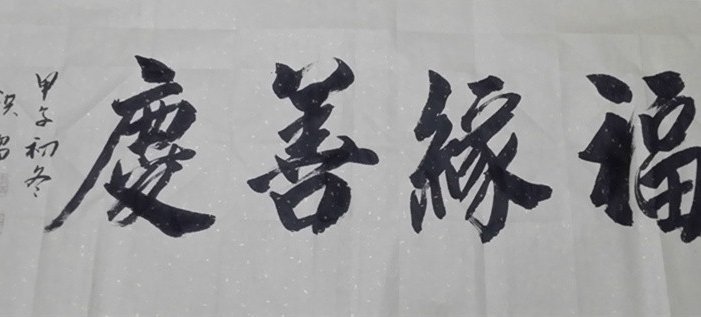 福緣善慶
甲午初冬